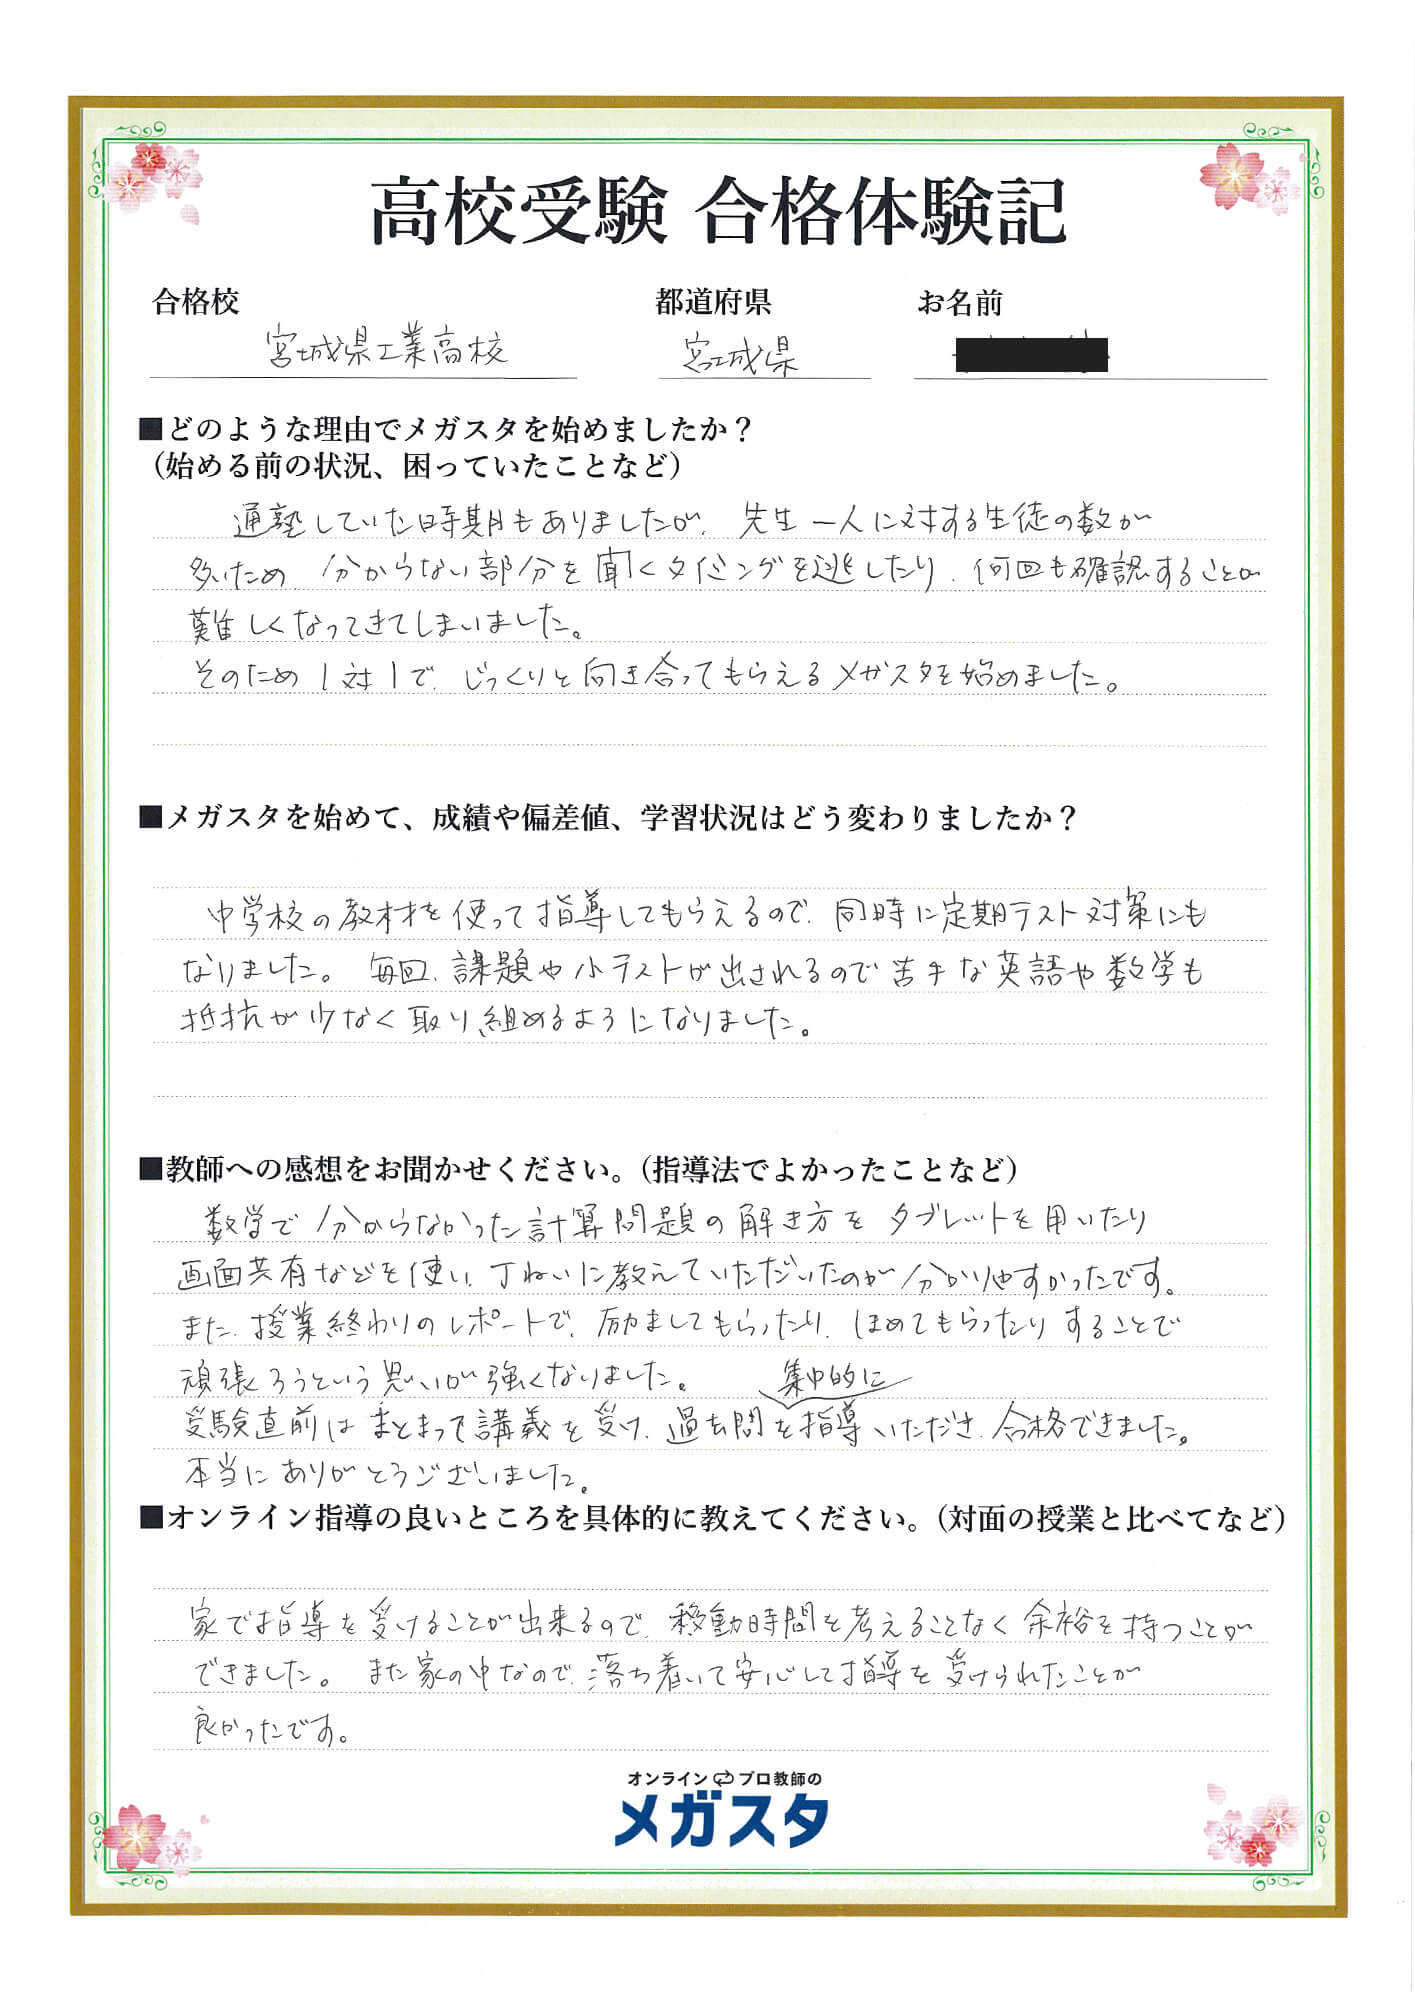 高校受験 合格体験記
合格校 都道府県 お名前
宮城県工業高校 宮城県
■どのような理由でメガスタを始めましたか？
（始める前の状況、困っていたことなど）
通塾していた時期もありましたが、先生一人に対する生徒の数が
多いため、分からない部分を聞くタイミングを逃したり、何回も確認することが
難しくなってきてしまいました。
そのため1対1で、じっくりと向き合ってもらえるメガスタを始めました。
■メガスタを始めて、成績や偏差値、学習状況はどう変わりましたか？
中学校の教材を使って指導してもらえるので、同時に定期テスト対策にも
なりました。毎回、課題や小テストが出されるので苦手な英語や数学も
抵抗が少なく取り組めるようになりました。
■教師への感想をお聞かせください。（指導法でよかったことなど）
数学で分からなかった計算問題の解き方をタブレットを用いたり
画面共有などを使い、丁ねいに教えていただいたのが分かりやすかったです。
また、授業終わりのレポートで、励ましてもらったり、ほめてもらったりすることで
頑張ろうという思いが強くなりました。
集中的に
受験直前はまとまって講義を受け、過去問を指導いただき、合格できました。
本当にありがとうございました。
■オンライン指導の良いところを具体的に教えてください。（対面の授業と比べてなど）
家で指導を受けることが出来るので、移動時間を考えることなく余裕を持つことが
できました。また家の中なので、落ち着いて安心して指導を受けられたことが
良かったです。
オンライン プロ教師の
メガスタ